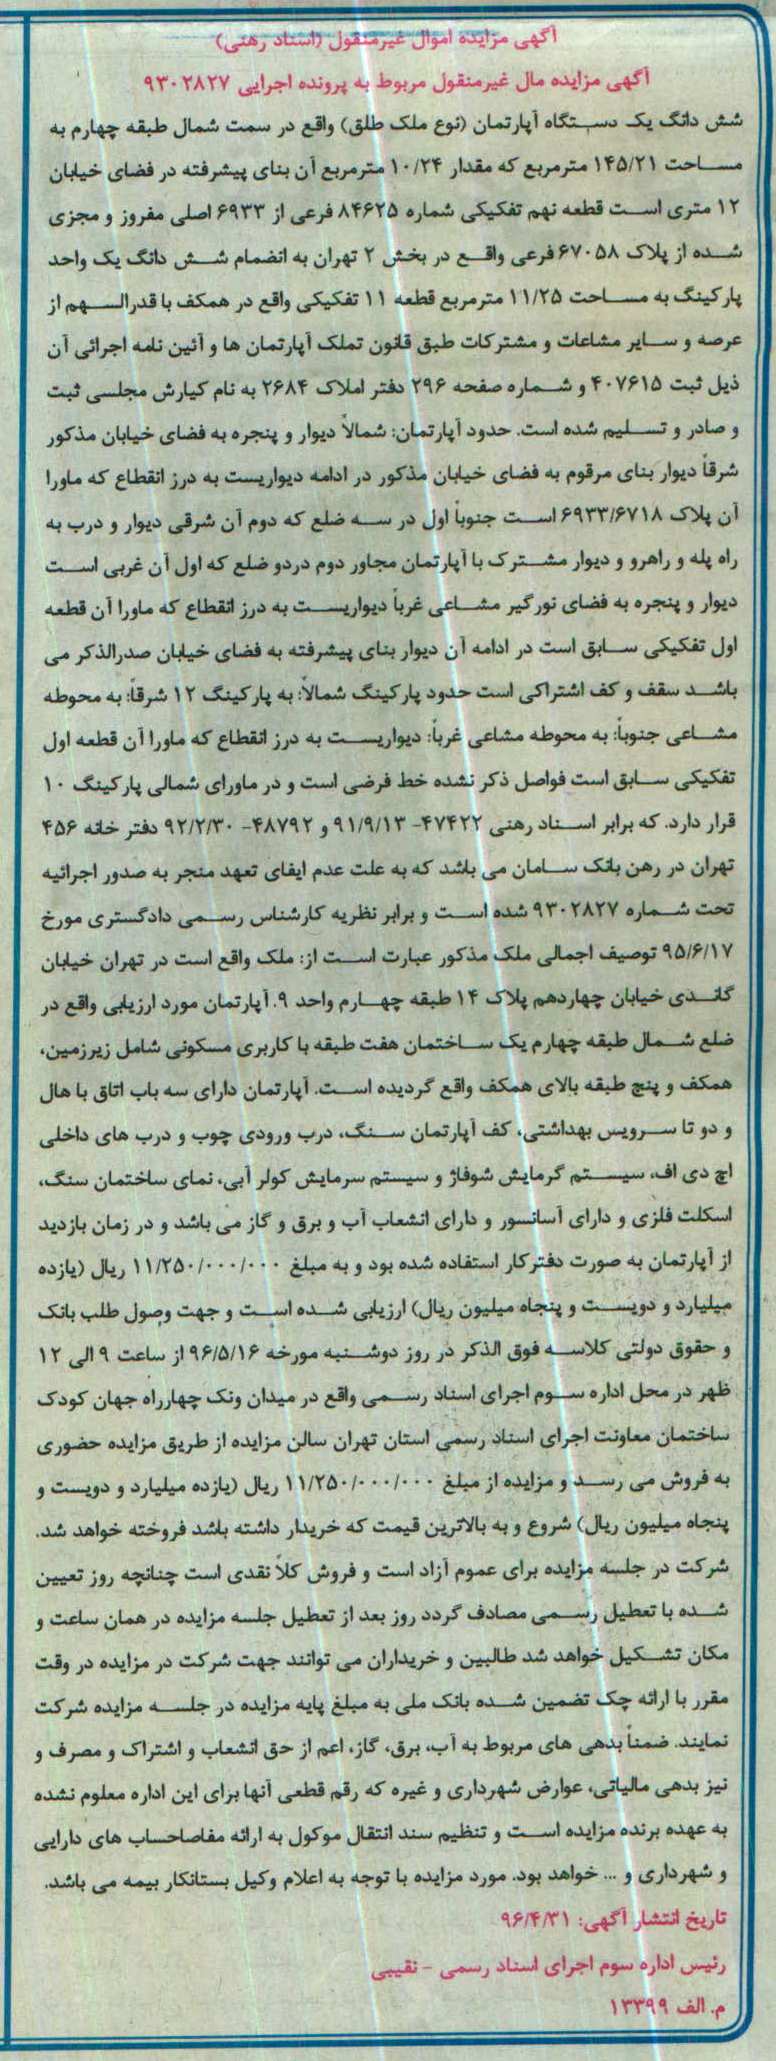 آگهی مزایده اموال غیرمنقول (اسناد رهنی)
آگهی مزایده مال غیرمنقول مربوط به پرونده اجرایی ۹۳۰۲۸۲۷
شش دانگ یک دستگاه آپارتمان (نوع ملک طلق) واقع در سمت شمال طبقه چهارم به
مساحت ۱۴۵/۲۱ مترمربع که مقدار ۱۰/۲۴ مترمربع آن بنای پیشرفته در فضای خیابان
۱۲ متری است قطعه نهم تفکیکی شماره ۸۴۶۲۵ فرعی از ۶۹۳۳ اصلی مفروز و مجزی
شده از پلاک ۶۷۰۵۸ فرعی واقع در بخش ۲ تهران به انضمام شش دانگ یک واحد
پارکینگ به مساحت ۱۱/۲۵ مترمربع قطعه ۱۱ تفکیکی واقع در همکف با قدرالسهم از
عرصه و سایر مشاعات و مشترکات طبق قانون تملک آپارتمان ها و آئین نامه اجرائی آن
ذیل ثبت ۴۰۷۶۱۵ و شماره صفحه ۲۹۶ دفتر املاک ۲۶۸۴ به نام کیارش مجلسی ثبت
و صادر و تسلیم شده است. حدود آپارتمان: شمالاً دیوار و پنجره به فضای خیابان مذکور
شرقاً دیوار بنای مرقوم به فضای خیابان مذکور در ادامه دیواریست به درز انقطاع که ماورا
آن پلاک ۶۹۳۳/۶۷۱۸ است جنوباً اول در سه ضلع که دوم آن شرقی دیوار و درب به
راه پله و راهرو و دیوار مشترک با آپارتمان مجاور دوم دردو ضلع که اول آن غربی است
دیوار و پنجره به فضای نورگیر مشاعی غرباً دیواریست به درز انقطاع که ماورا آن قطعه
اول تفکیکی سابق است در ادامه آن دیوار بنای پیشرفته به فضای خیابان صدرالذکر می
باشد سقف و کف اشتراکی است حدود پارکینگ شمالاً: به پارکینگ ۱۲ شرقاً: به محوطه
مشاعی جنوباً: به محوطه مشاعی غرباً: دیواریست به درز انقطاع که ماورا آن قطعه اول
تفکیکی سابق است فواصل ذکر نشده خط فرضی است و در ماورای شمالی پارکینگ ۱۰
قرار دارد. که برابر اسناد رهنی ۴۷۴۲۲- ۹۱/۹/۱۳ و ۴۸۷۹۲- ۹۲/۲/۳۰ دفتر خانه ۴۵۶
تهران در رهن بانک سامان می باشد که به علت عدم ایفای تعهد منجر به صدور اجرائیه
تحت شماره ۹۳۰۲۸۲۷ شده است و برابر نظریه کارشناس رسمی دادگستری مورخ
۹۵/۶/۱۷ توصیف اجمالی ملک مذکور عبارت است از: ملک واقع است در تهران خیابان
گاندی خیابان چهاردهم پلاک ۱۴ طبقه چهارم واحد ۹. آپارتمان مورد ارزیابی واقع در
ضلع شمال طبقه چهارم یک ساختمان هفت طبقه با کاربری مسکونی شامل زیرزمین،
همکف و پنج طبقه بالای همکف واقع گردیده است. آپارتمان دارای سه باب اتاق با هال
و دو تا سرویس بهداشتی، کف آپارتمان سنگ، درب ورودی چوب و درب های داخلی
اچ دی اف، سیستم گرمایش شوفاژ و سیستم سرمایش کولر آبی، نمای ساختمان سنگ،
اسکلت فلزی و دارای آسانسور و دارای انشعاب آب و برق و گاز می باشد و در زمان بازدید
از آپارتمان به صورت دفترکار استفاده شده بود و به مبلغ ۱۱/۲۵۰/۰۰۰/۰۰۰ ریال (یازده
میلیارد و دویست و پنجاه میلیون ریال) ارزیابی شده است و جهت وصول طلب بانک
و حقوق دولتی کلاسه فوق الذکر در روز دوشنبه مورخه ۹۶/۵/۱۶ از ساعت ۹ الی ۱۲
ظهر در محل اداره سوم اجرای اسناد رسمی واقع در میدان ونک چهارراه جهان کودک
ساختمان معاونت اجرای اسناد رسمی استان تهران سالن مزایده از طریق مزایده حضوری
به فروش می رسد و مزایده از مبلغ ۱۱/۲۵۰/۰۰۰/۰۰۰ ریال (یازده میلیارد و دویست و
پنجاه میلیون ریال) شروع و به بالاترین قیمت که خریدار داشته باشد فروخته خواهد شد.
شرکت در جلسه مزایده برای عموم آزاد است و فروش کلاً نقدی است چنانچه روز تعیین
شده با تعطیل رسمی مصادف گردد روز بعد از تعطیل جلسه مزایده در همان ساعت و
مکان تشکیل خواهد شد طالبین و خریداران می توانند جهت شرکت در مزایده در وقت
مقرر با ارائه چک تضمین شده بانک ملی به مبلغ پایه مزایده در جلسه مزایده شرکت
نمایند. ضمناً بدهی های مربوط به آب، برق، گاز، اعم از حق انشعاب و اشتراک و مصرف و
نیز بدهی مالیاتی، عوارض شهرداری و غیره که رقم قطعی آنها برای این اداره معلوم نشده
به عهده برنده مزایده است و تنظیم سند انتقال موکول به ارائه مفاصاحساب های دارایی
و شهرداری و ... خواهد بود. مورد مزایده با توجه به اعلام وکیل بستانکار بیمه می باشد.
تاریخ انتشار آگهی: ۹۶/۴/۳۱
رئیس اداره سوم اجرای اسناد رسمی - نقیبی
م. الف ۱۳۳۹۹